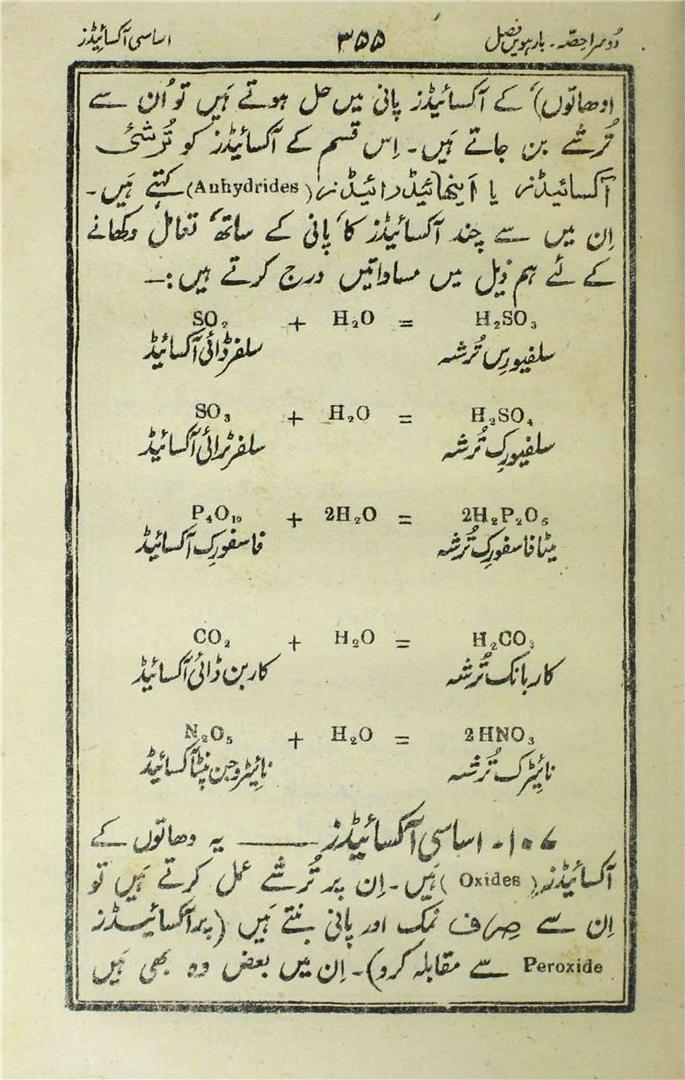 دُوسرا حصّہ۔ بارہویں فصل ۳۵۵ اساسی آکسائیڈز
ادھاتوں) کے آکسائیڈز پانی میں حل ہوتے ہَیں تو اُن سے
تُرشے بن جاتے ہَیں۔ اِس قسم کے آکسائیڈز کو تُرشئی
آکسائیڈز یا اَینہائیڈرائیڈز (Anhydrides) کہتے ہَیں۔
اِن میں سے چند آکسائیڈز کا، پانی کے ساتھ، تعامل دکھانے
کے لئے ہم ذیل میں مساواتیں درج کرتے ہیں :—
SO₂ + H₂O = H₂SO₃
سلفر ڈائی آکسائیڈ سلفیورس تُرشہ
SO₃ + H₂O = H₂SO₄
سلفر ٹرائی آکسائیڈ سلفیورک تُرشہ
P₄O₁₀ + 2H₂O = 2H₂P₂O₆
فاسفورک آکسائیڈ میٹا فاسفورک تُرشہ
CO₂ + H₂O = H₂CO₃
کاربن ڈائی آکسائیڈ کاربانک تُرشہ
N₂O₅ + H₂O = 2HNO₃
نائیٹروجن پنٹا آکسائیڈ نائیٹرک تُرشہ
۱۰۷۔ اساسی آکسائیڈز —— یہ دھاتوں کے
آکسائیڈز (Oxides) ہَیں۔ اِن پر تُرشے عمل کرتے ہَیں تو
اِن سے صِرف نمک اور پانی بنتے ہَیں (پر آکسائیڈز
Peroxide سے مقابلہ کرو)۔ اِن میں بعض وہ بھی ہَیں